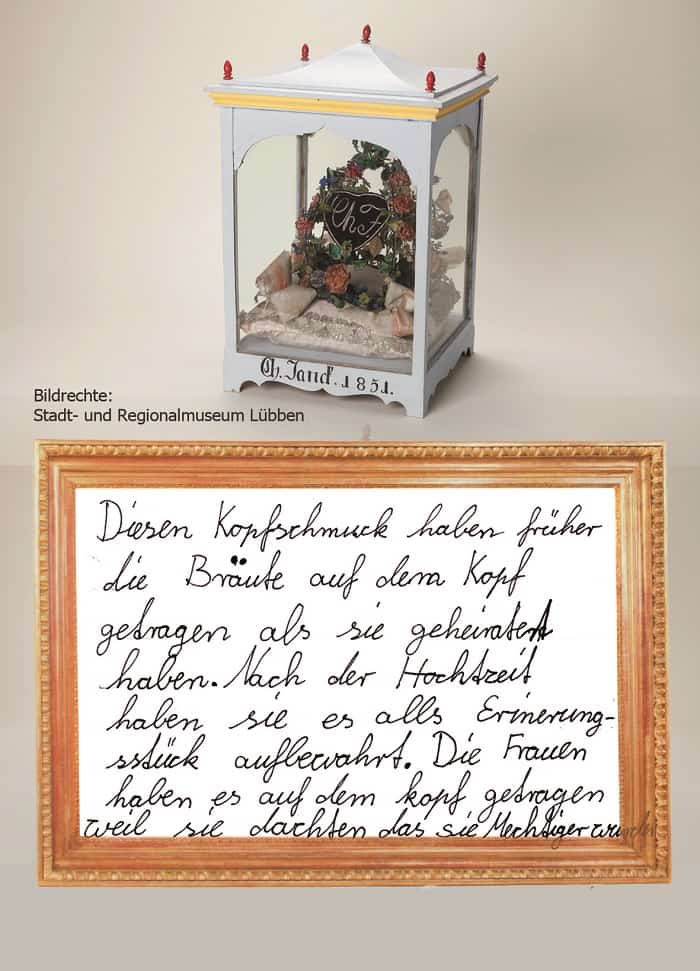 Ch. J.
Ch. Janck. 1851.
Bildrechte:
Stadt- und Regionalmuseum Lübben
Diesen Kopfschmuck haben früher
die Bräute auf dem Kopf
getragen als sie geheiratet
haben. Nach der Hochtzeit
haben sie es alls Erinerung-
sstück aufbewahrt. Die Frauen
haben es auf dem kopf getragen
weil sie dachten das sie Mechtiger wurden